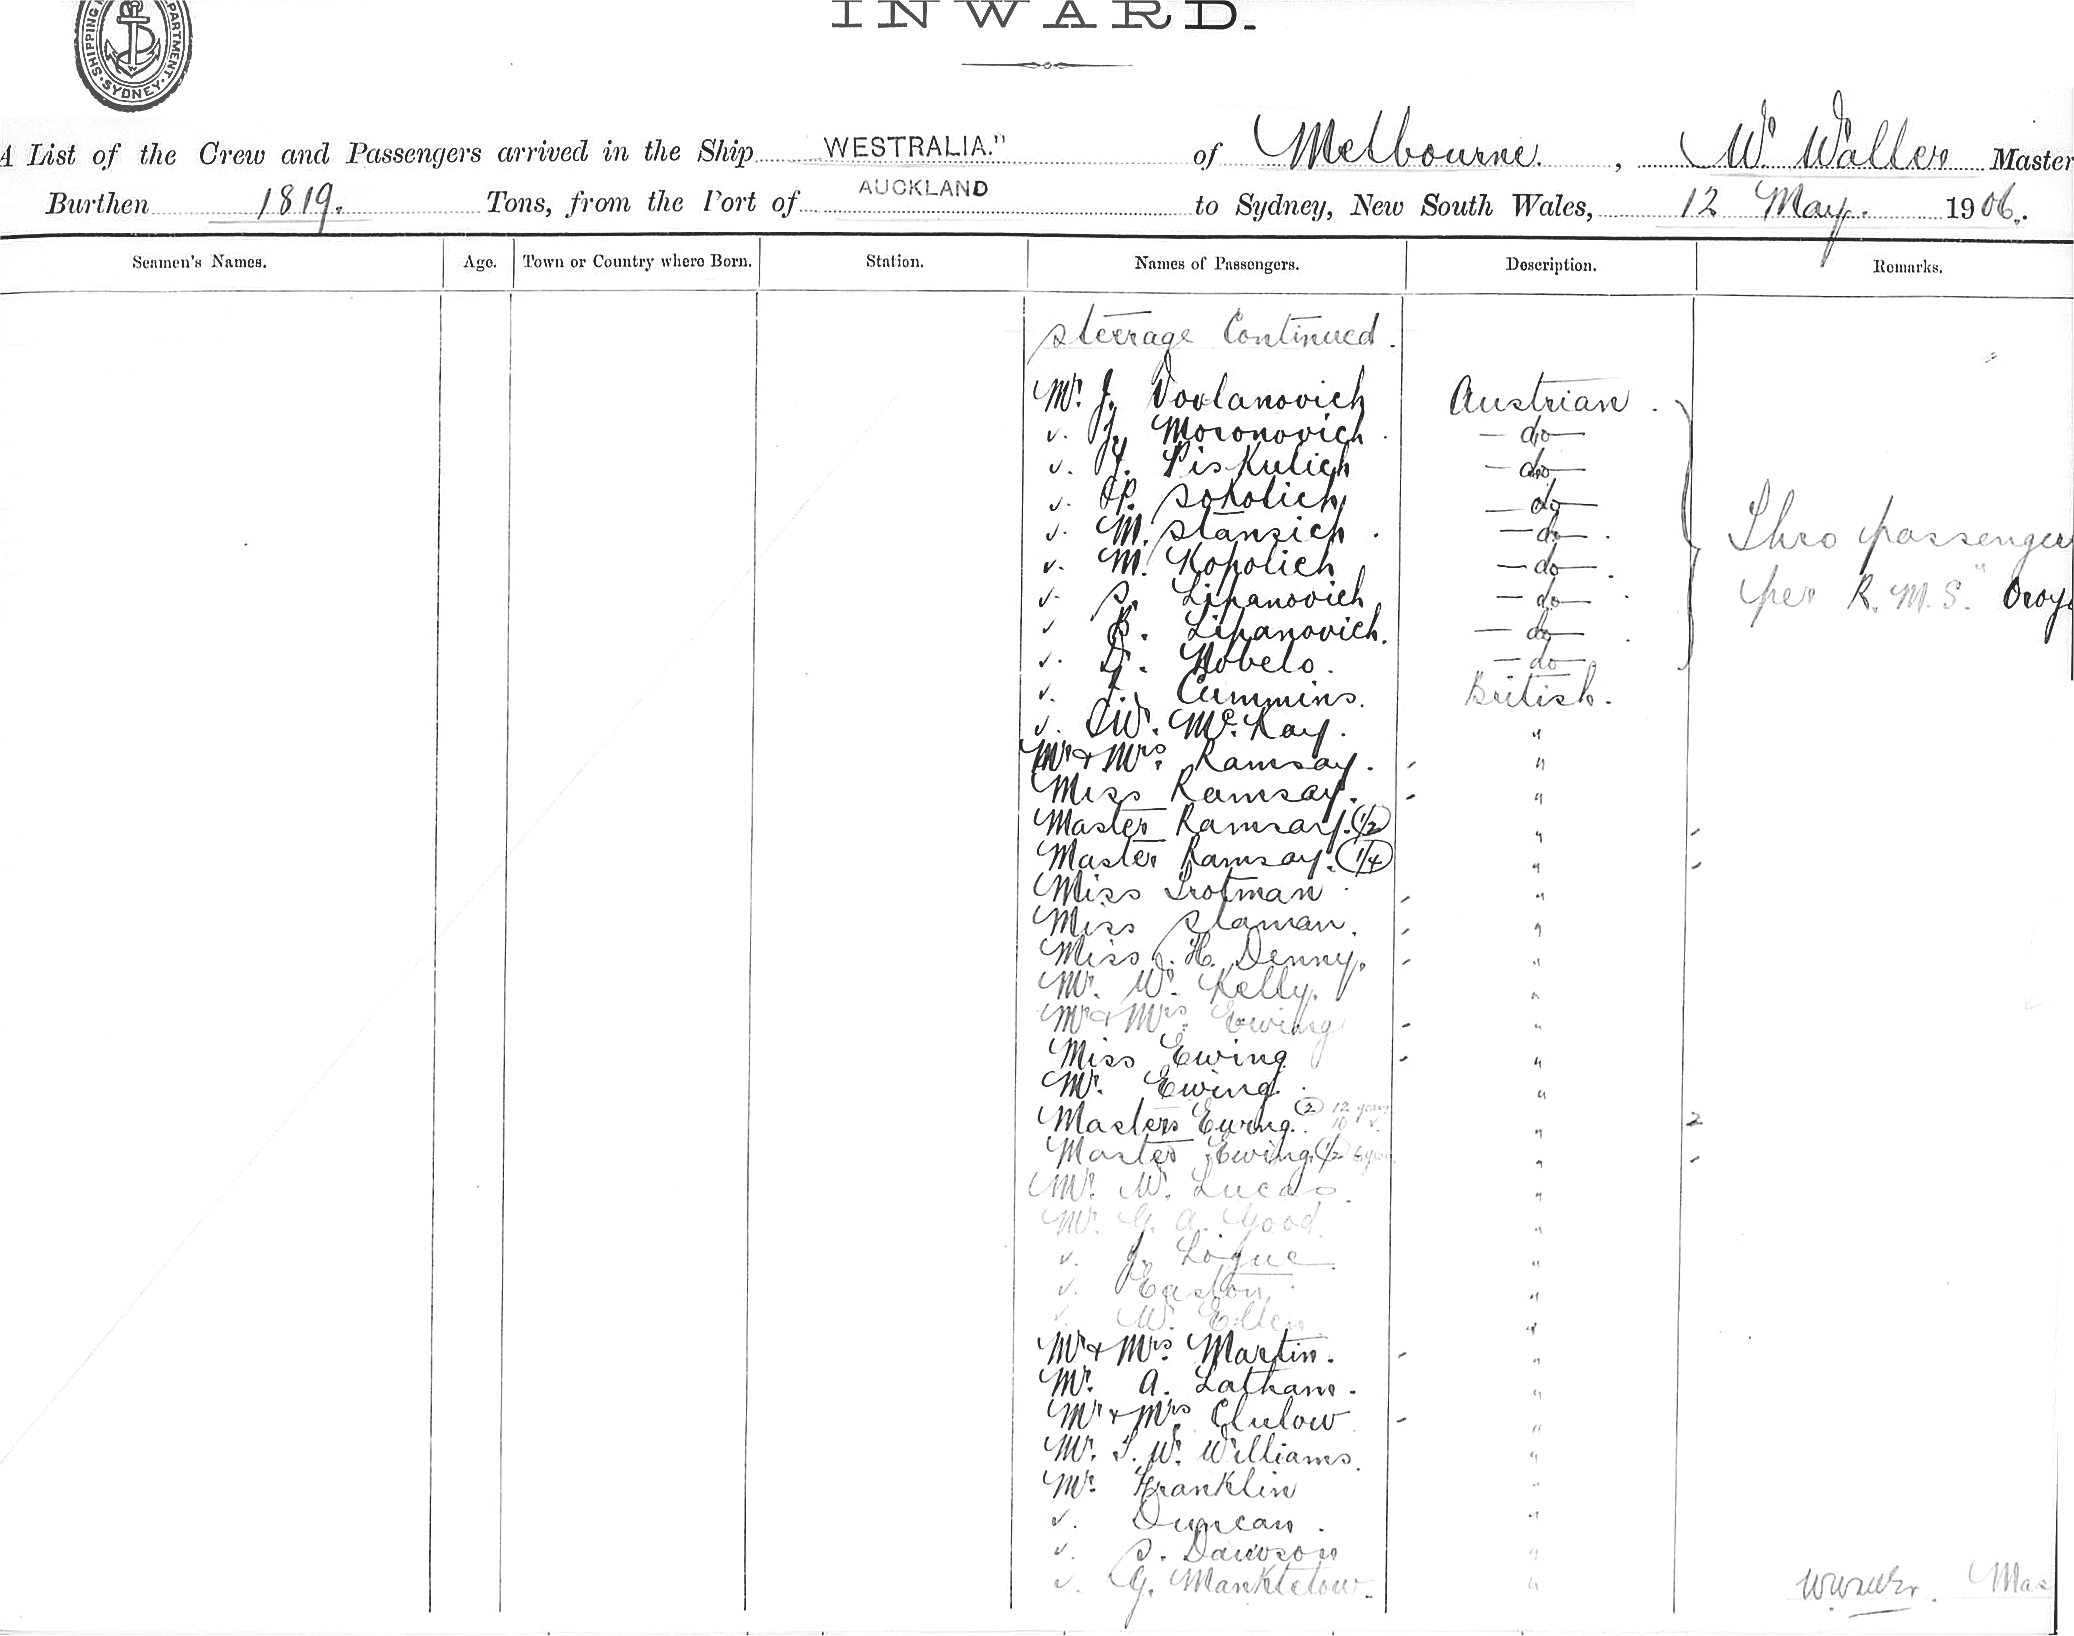 INWARD.
SHIPPING DEPARTMENT SYDNEY
A List of the Crew and Passengers arrived in the Ship WESTRALIA." of Melbourne, W. Waller Master
Burthen 1819. Tons, from the Port of AUCKLAND to Sydney, New South Wales, 12 May. 1906.
Seamen's Names. Age. Town or Country where Born. Station. Names of Passengers. Description. Remarks.
Steerage Continued.
Mr. J. Vovlanovich Austrian.
v. J. Mosonovich. — do —
v. J. Piskulich — do —
v. P. Sokolich — do —
v. M. Stansich. — do —
v. M. Kopolich — do —
v. S. Lipanovich — do —
v. Lipanovich. — do —
v. Nobelo. — do —
v. J. Cummins. British.
v. W. McKay. "
Mr & Mrs. Ramsay. "
Miss Ramsay. "
Master Ramsay. (1/2) "
Master Ramsay. (1/4) "
Miss Trotman "
Miss Slaman. "
Miss H. Denny. "
Mr. W. Kelly. "
Mr & Mrs. Ewing "
Miss Ewing "
Mr. Ewing. "
Masters Ewing. (2) 12 years 10 v. " 2
Master Ewing (1/2) 6 years "
Mr. W. Lucas. "
Mr. G. A. Good "
v. J. Logue. "
v. Easton. "
v. W. Ellen "
Mr & Mrs. Martin. "
Mr. A. Latham. "
Mr & Mrs Clulow "
Mr. T. W. Williams. "
Mr. Franklin "
v. Duncan. "
v. S. Dawson "
v. G. Manktelow. "
Thro passengers
per R.M.S. "Oroya
Mas